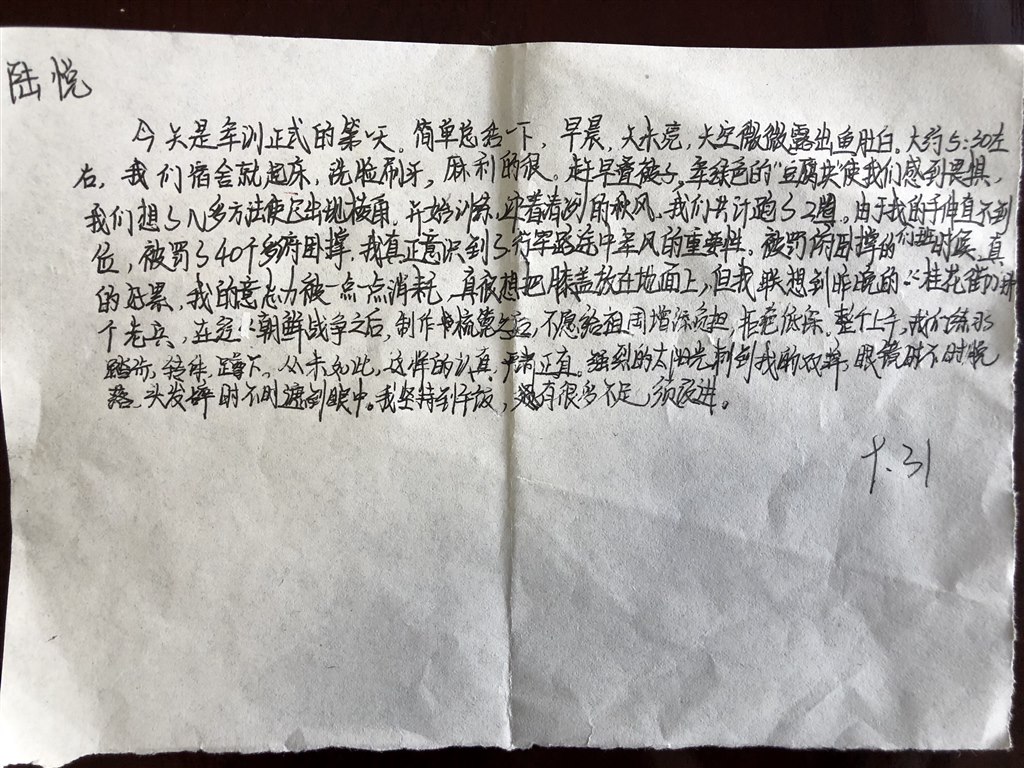 陆悦
今天是军训正式的第一天。简单总结一下，早晨，天未亮，天空微微露出鱼肚白。大约5:30左
右，我们宿舍就起床，洗脸刷牙，麻利的很。赶早叠被子，军绿色的"豆腐块"使我们感到畏惧，
我们想了N多方法使它出现棱角。开始训练，迎着清冽的秋风。我们共计跑了2圈。由于我的手伸直不到
位，被罚了40个多俯卧撑，我真正意识到了行军路途中军风的重要性。被罚俯卧撑的时候，真
的好累，我的意志力被一点一点消耗，真很想把膝盖放在地面上，但我联想到昨晚的"桂花街"
个老兵，在 朝鲜战争之后，制作 不愿给祖国增添负担， 整个上午，我们练习
踏步，转体，蹲下。从未 这样的认真，严肃正直。强烈的太阳光刺到我的双眸，眼镜时不时脱
落，头发 时不时遮到眼中。我坚持到午饭，还有很多不足，须改进。
十.31